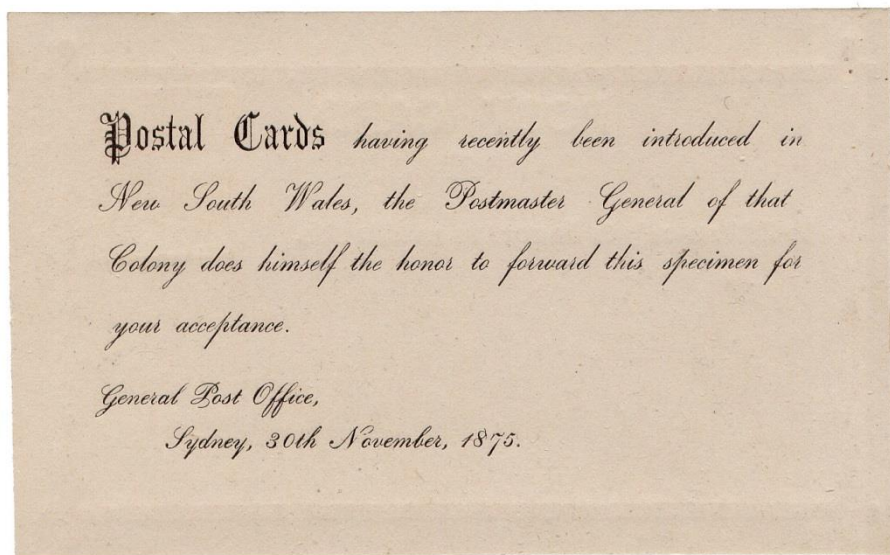 Postal Cards having recently been introduced in
New South Wales, the Postmaster General of that
Colony does himself the honor to forward this specimen for
your acceptance.
General Post Office,
Sydney, 30th November, 1875.